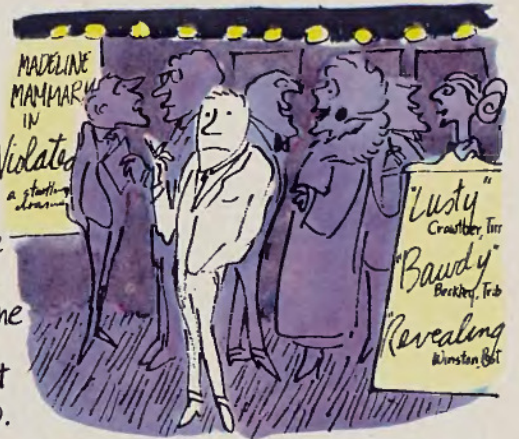 MADELINE
MAMMARY
IN
Violated
a startling
drama
"Lusty"
Crowther, Times
"Bawdy"
Beckley, Trib
"Revealing
Winston, Post
me
t
.